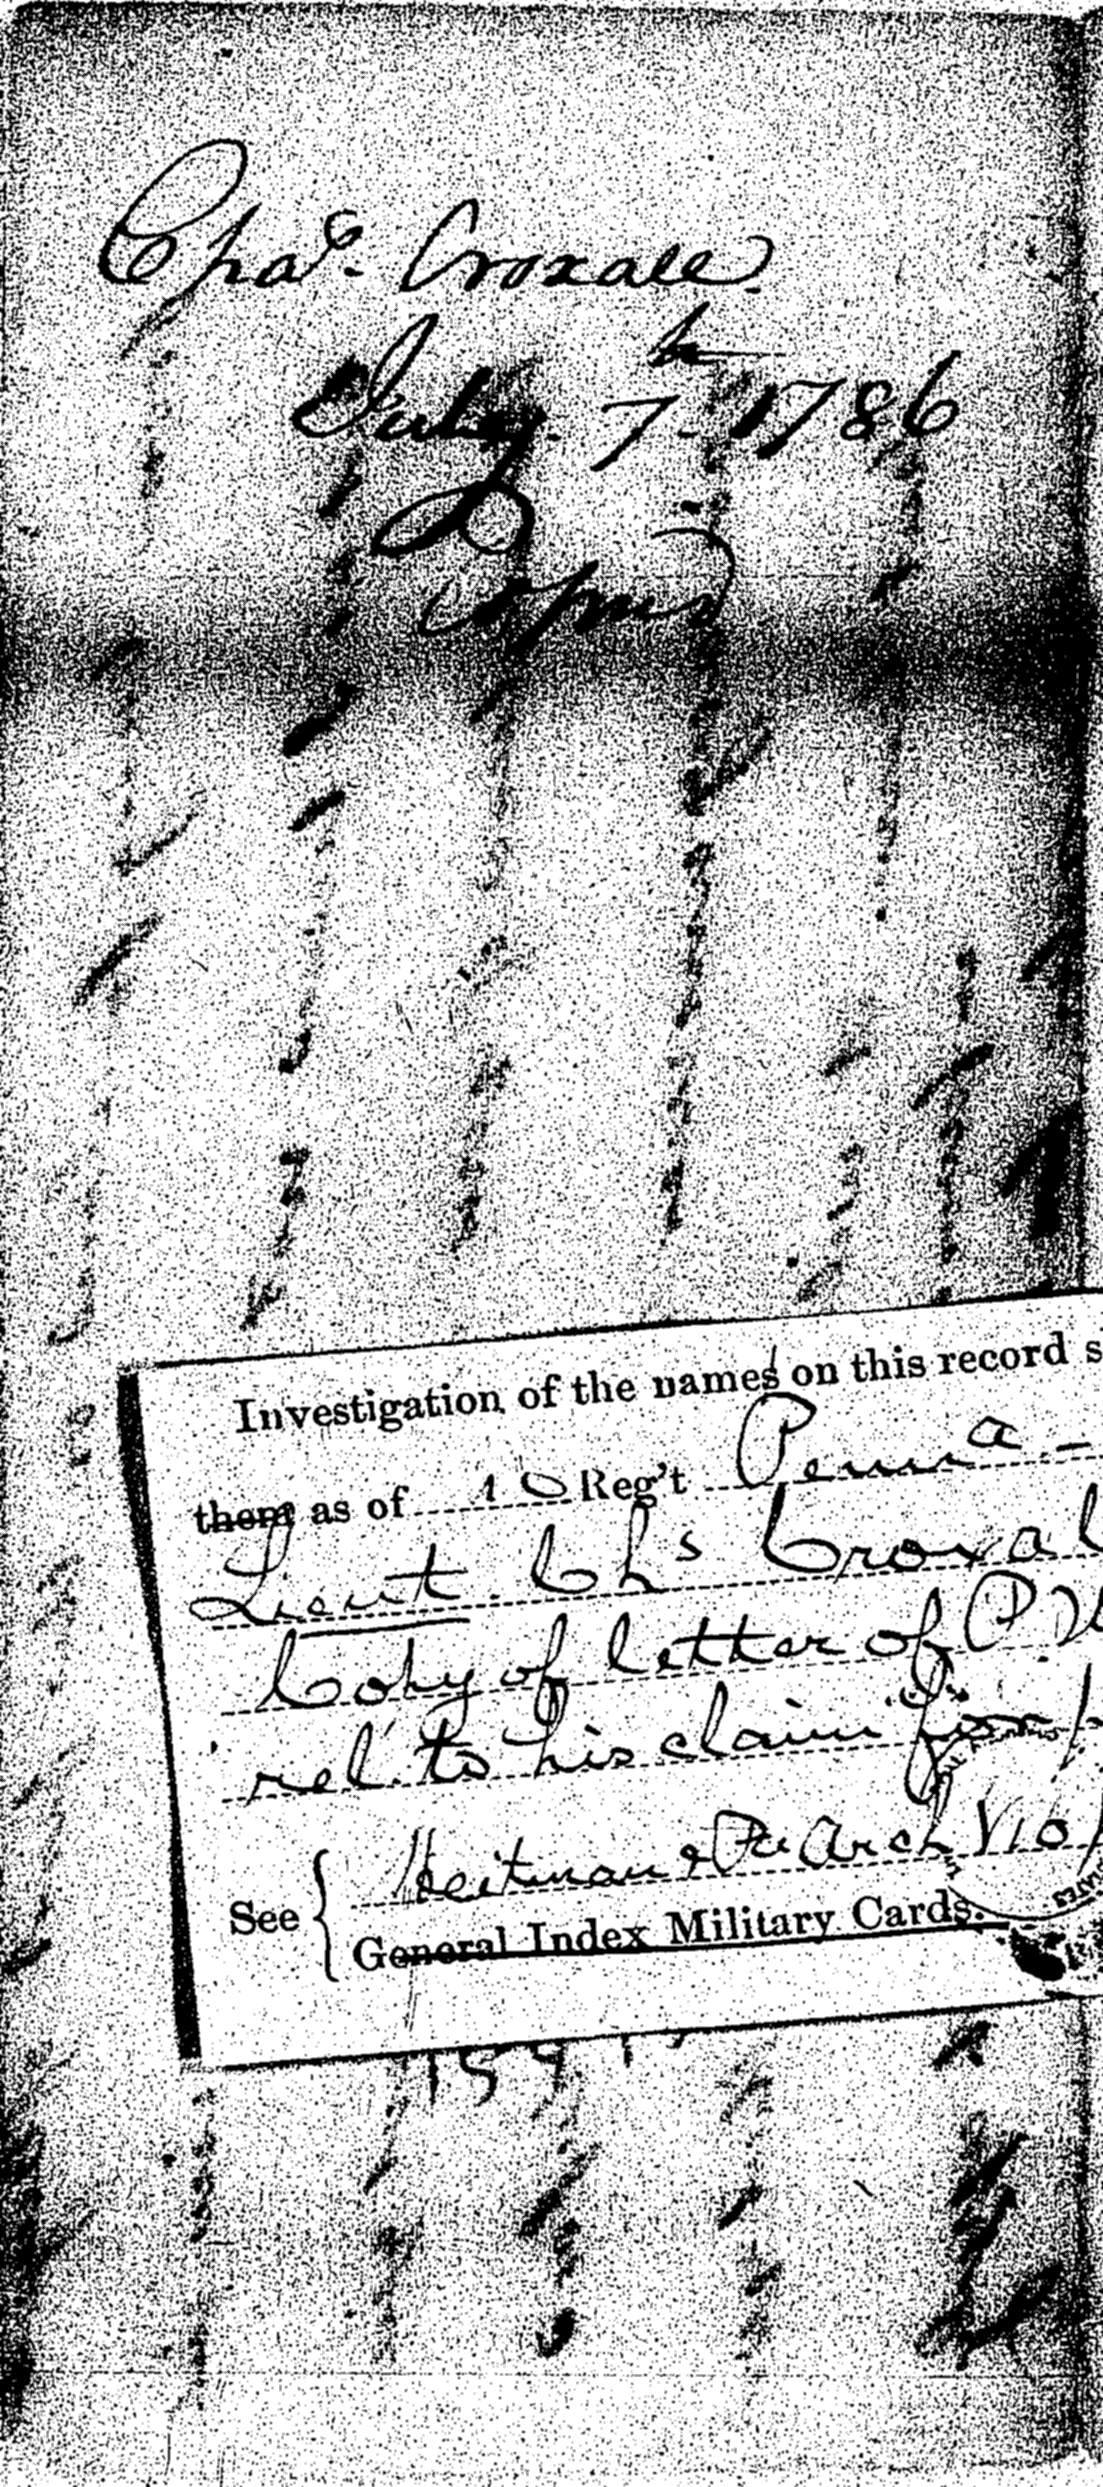 Chas. Croxall
July. 7th 1786
Copied
Investigation of the names on this record s
them as of 10 Reg't Penna -
Lieut. Chs Croxal
Copy of letter of P
rel. to his claim for
See { Heitman & Pa Arch V 10
General Index Military Cards.